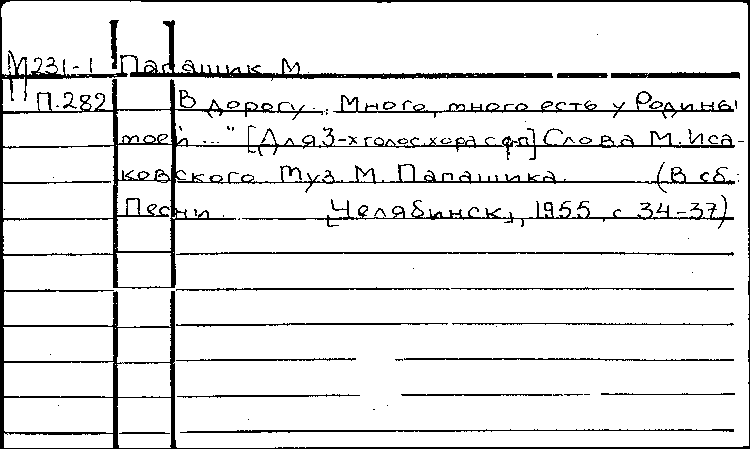 М231-1 Папашик, М.
П.282 В дорогу. „Много, много есть у Родины
моей ..." [Для 3-х голос. хора с ф-п] Слова М. Иса-
ковского. Муз. М. Папашика. (В сб.:
Песни. [Челябинск], 1955, с 34-37)